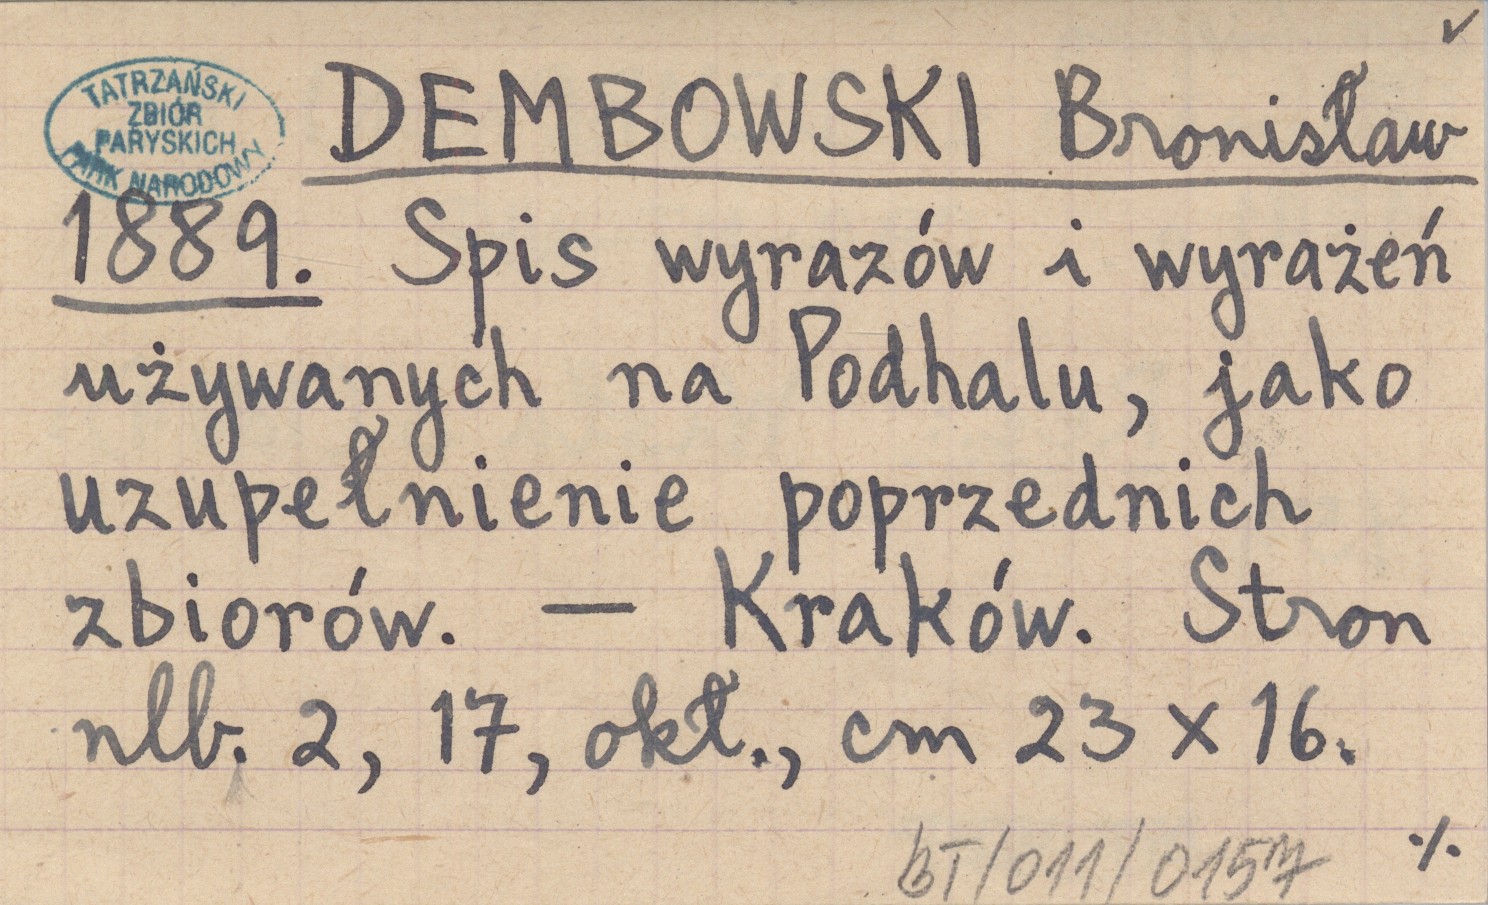 ✓
TATRZAŃSKI
ZBIÓR
PARYSKICH
PARK NARODOWY
DEMBOWSKI Bronisław
1889. Spis wyrazów i wyrażeń
używanych na Podhalu, jako
uzupełnienie poprzednich
zbiorów. — Kraków. Stron
nlb. 2, 17, okł., cm 23 x 16.
bT/011/0157
./.